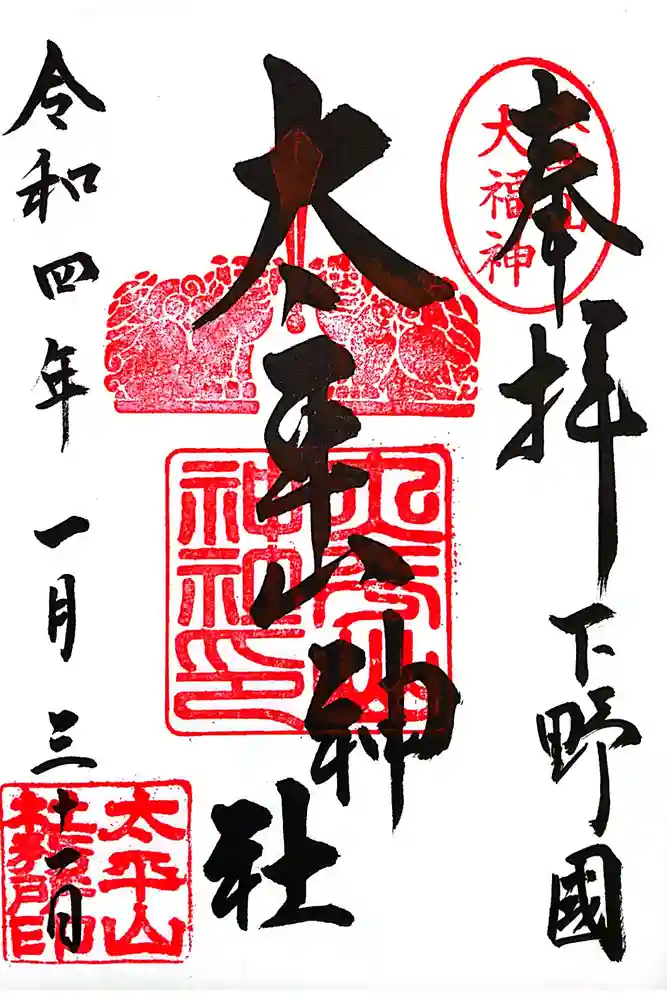 奉拝
下野國
太平山神社
令和四年一月三十一日
太平山
大福神
太平山
神社印
太平山
社務所印